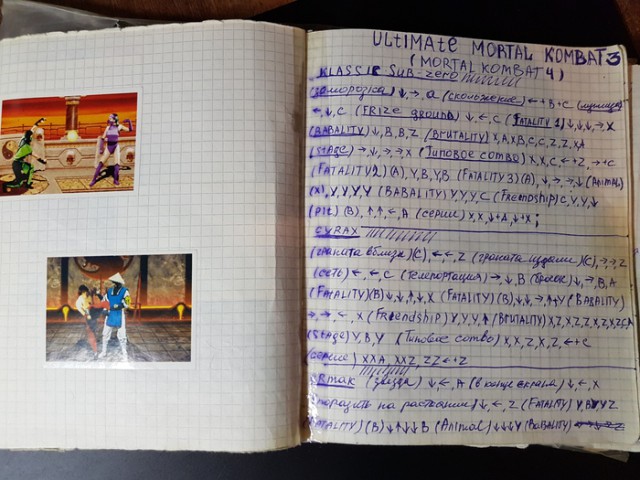 ULTIMATE MORTAL KOMBAT 3
(MORTAL KOMBAT 4)
KLASSIC SUB-ZERO
(заморозка) ↓,→, A (скольжение) ←+B+C
←,↓,C (FRIZE GROUND) ↓,←,C (FATALITY 1) ↓,↓,↓,→,X
(BABALITY) ↓,B,B,Z (BRUTALITY) X,A,X,B,C,C,Z,Z,X,A
(STAGE) →,↓,→,→,X (Типовое combo) X,X,C,←+Z,→+C
(FATALITY 2) (A), Y,B,Y,B (FATALITY 3) (A), ↓,→,→,↓ (ANIMAL)
(X), Y,Y,Y,Y (BABALITY) Y,Y,Y,C (Friendship) C,Y,Y,↓
(PIT) (B), ↑,↑,←,A (серии) X,X,↓+A,↓+X;
CYRAX
(граната вблизи) (C), ←,←,Z (граната издали) (C), →,→,Z
(сеть) ←,←,C (телепортация) →,↓,B (бросок) ↓,→,B,A
(FATALITY) (B) ↓,↓,↑,↓,X (FATALITY) (B) ↓,↓,→,↑,Y (BABALITY)
→,→,←,X (Friendship) Y,Y,Y,↑ (BRUTALITY) X,Z,X,Z,Z,X,Z,X,Z,C,A
(STAGE) Y,B,Y (Типовое combo) X,X,Z,X,Z,←+C
(серии) XXA, XXZ, ZZ←+Z
(звезда) ↓,←,A (в конце экрана) ↓,←,X
на растоянии) ↓,←,Z (FATALITY) Y,B,Y,Y,Z
(FATALITY) (B) ↓↑↓↓B (ANIMAL) ↓↓↓Y (BABALITY)